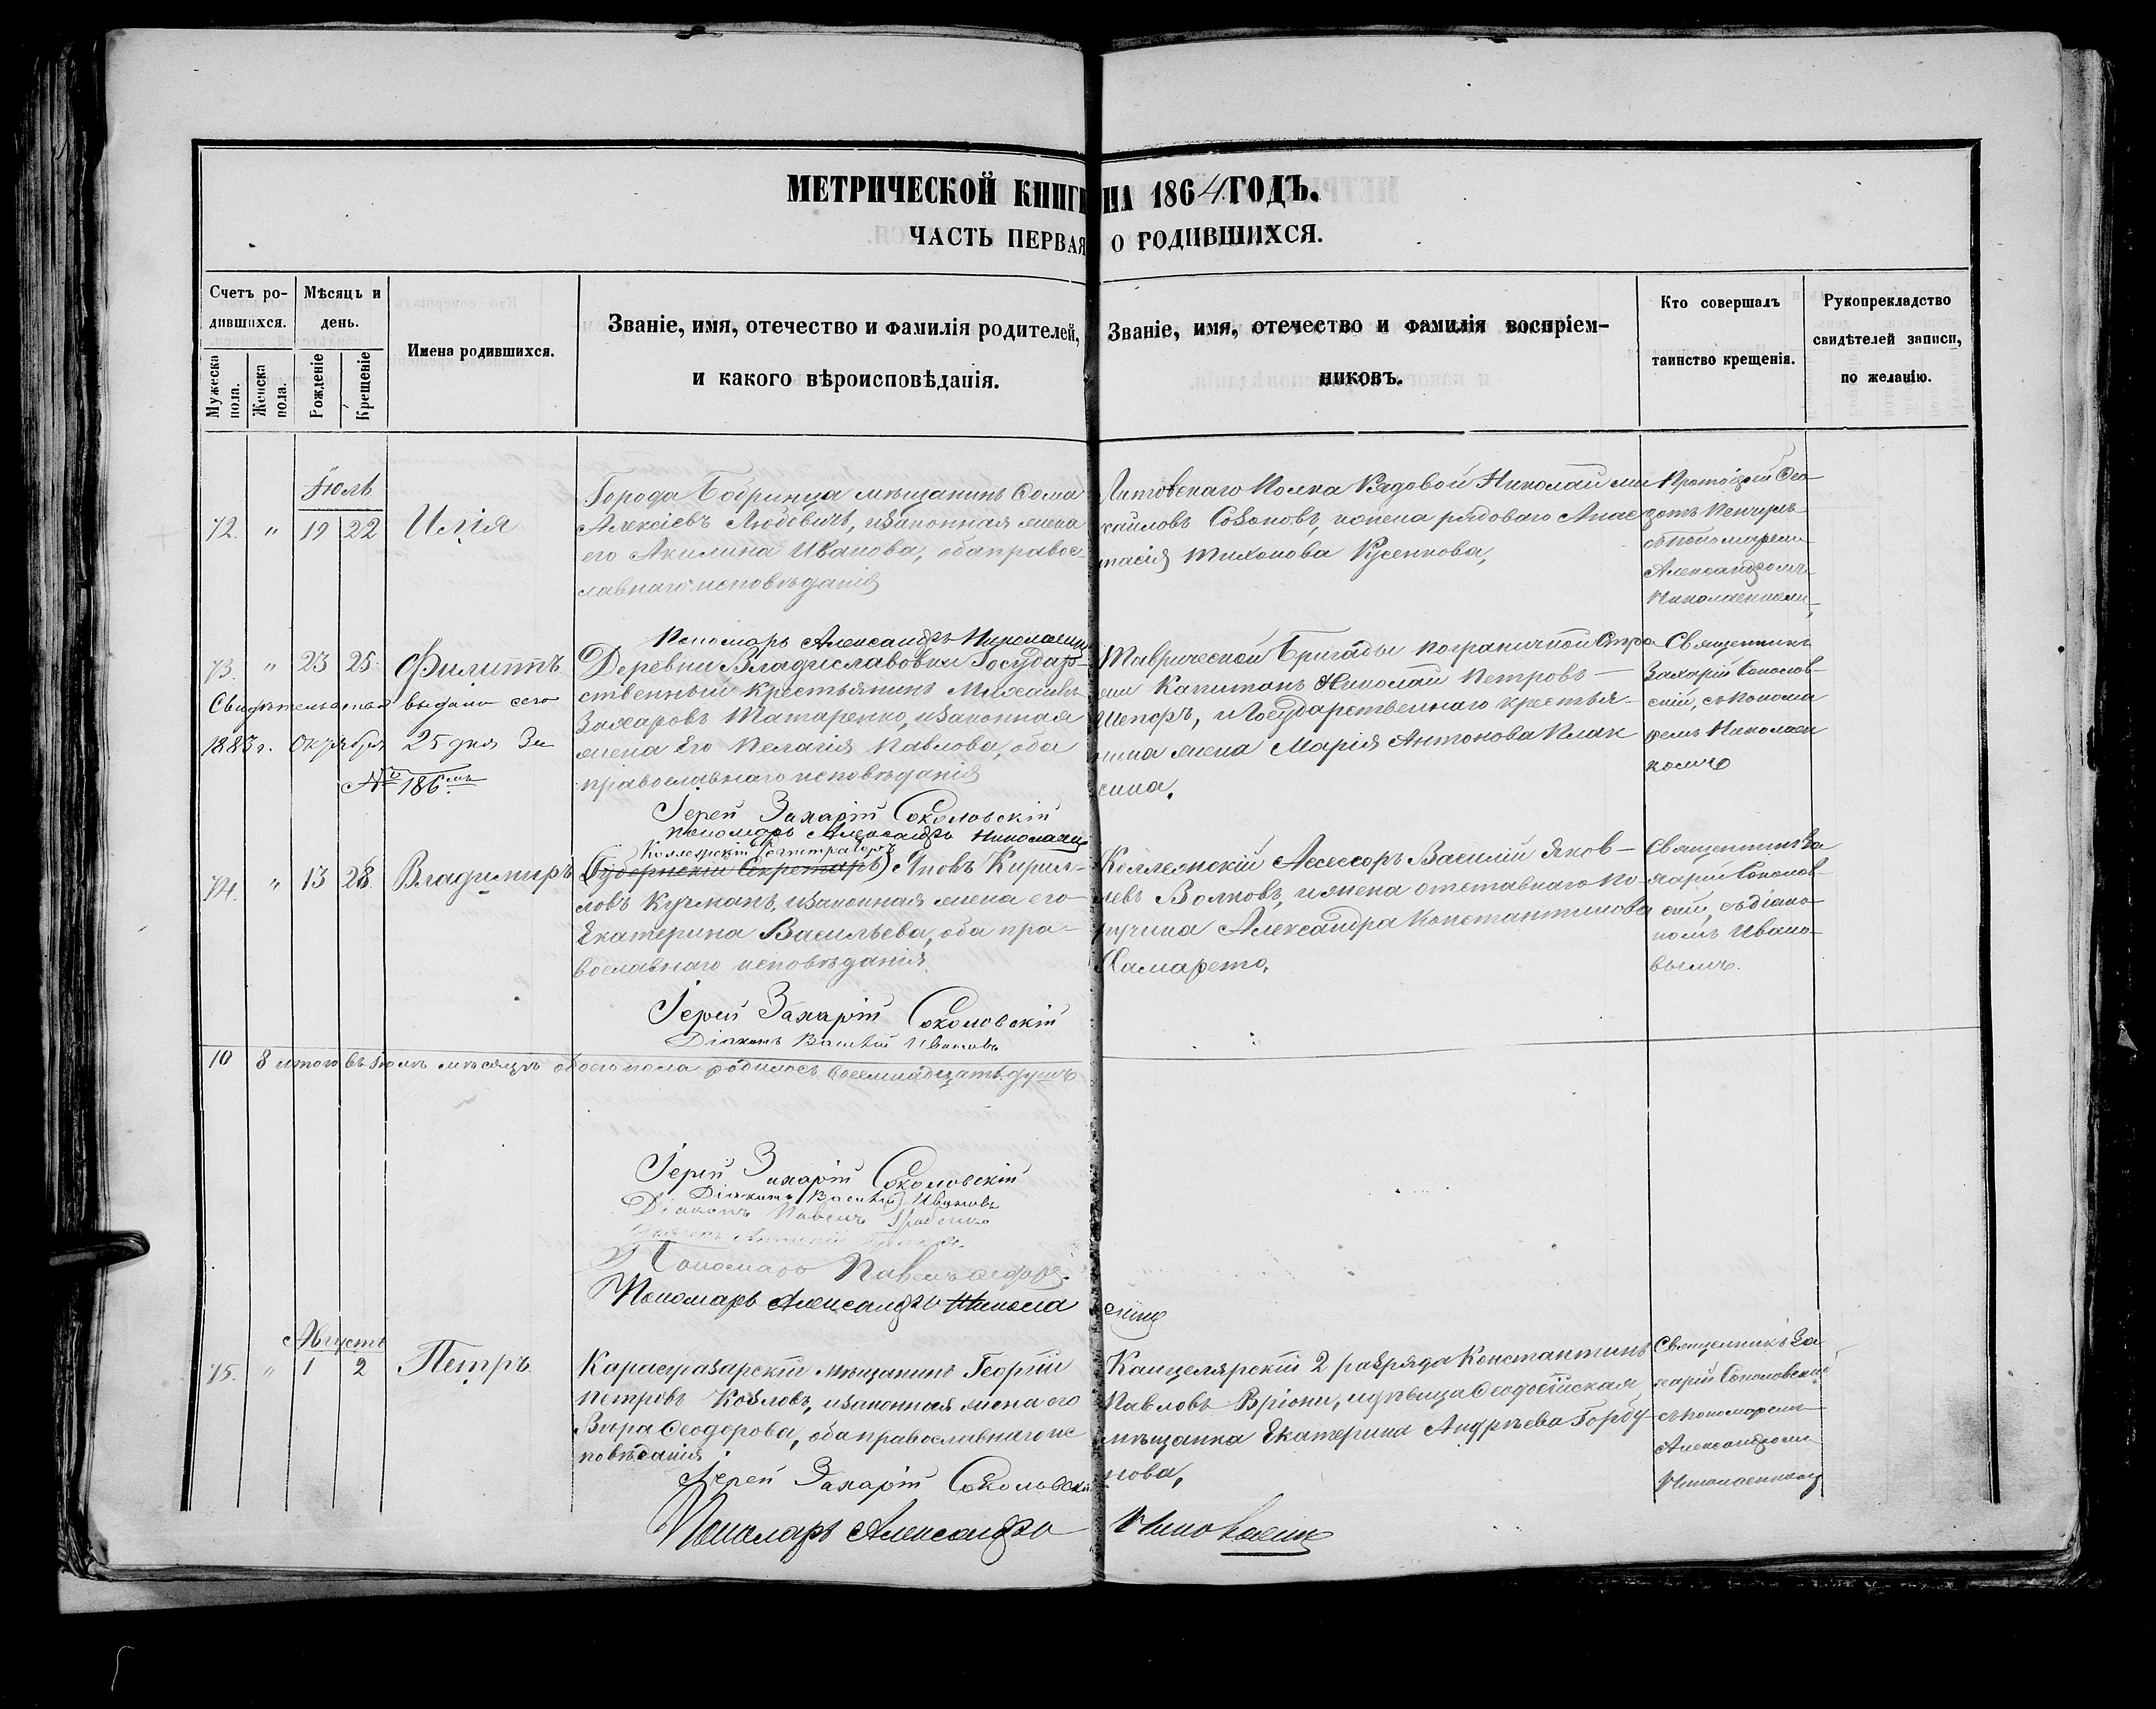 МЕТРИЧЕСКОЙ КНИГИ НА 1864 ГОДЪ.
ЧАСТЬ ПЕРВАЯ О РОДИВШИХСЯ.
Счетъ ро-
дившихся.
Мужеска пола.
Женска пола.
Мѣсяць и
день.
Рожденіе
Крещеніе
Имена родившихся.
Званіе, имя, отечество и фамилія родителей,
и какого вѣроисповѣданія.
Званіе, имя, отечество и фамилія воспріем-
никовъ.
Кто совершалъ
таинство крещенія.
Рукоприкладство
свидѣтелей записи,
по желанію.
Іюль
72. " 19 22 Илія
Города Бобринца мѣщанинъ Ѳома
Алексіевъ Любовичъ, изаконная жена
его Акилина Иванова, оба правос-
лавнаго исповѣданія
Пономарь Александръ Николаенко
Литовскаго Полка Рядовой Николай Ми
хаиловъ Созоновъ, и жена рядоваго Анас
тасія Тихонова Русенкова,
Протоіерей
съ пономаремъ
Александромъ
Николаенкомъ,
73. " 23 25. Филиппъ
Свидѣтельство выдано сего
1883 г. Октября 25 дня За
№ 186.мъ
Деревни Владиславовки Государ-
ственный Крестьянинъ Михаилъ
Захаровъ Татаренко, изаконная
жена Его Пелагія Павлова, оба
православнаго исповѣданія
Іерей Захарій Соколовскій
пономарь Александръ Николаенко
Таврической Бригады пограничной Стра
жи Капитанъ Николай Петровъ
и Государственнаго крестья-
нина жена Марія Антонова Плак
сина.
Священникъ
Захарій Соколов-
скій, съ понома
ремъ Николаен
комъ
74. " 13 28. Владимиръ
Коллежскій Регистраторъ
(Губернскій Секретарь) Яковъ Кирил-
ловъ Кугманъ, изаконная жена его
Екатерина Васильева, оба пра-
вославнаго исповѣданія.
Іерей Захарій Соколовскій
Діаконъ Василій Ивановъ
Коллежскій Асессоръ Василій Яков-
левъ Волковъ, и жена отставнаго По-
ручика Александра Константинова
Священникъ За
харій Соколов-
скій, съ діако-
номъ Ивано-
вымъ.
10 8 итого въ Іюлѣ мѣсяцѣ обоего пола родилось восемнадцать душъ
Іерей Захарій Соколовскій
Діаконъ Василій Ивановъ
Діаконъ Павелъ
Пономарь Павелъ
Пономарь Александръ Николаенко
Августъ
75. " 1 2 Петръ
Карасубазарскій мѣщанинъ Георгій
Петровъ Козловъ, изаконная жена его
Вѣра Ѳеодорова, оба православнаго ис
повѣданія
Іерей Захарій Соколовскій
Пономарь Александръ Николаенко
Канцелярскій 2 разряда Константинъ
Павловъ Вріони, и дѣвица Ѳеодосійская
мѣщанка Екатерина Андрѣева Горбу-
нова,
Священникъ За
харій Соколовскій
съ пономаремъ
Александромъ
Николаенкомъ